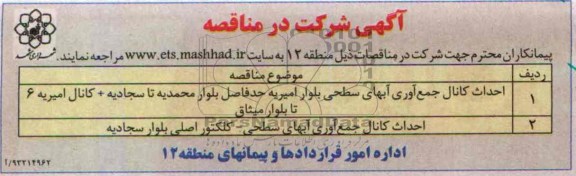 آگهی شرکت در مناقصه
پیمانکاران محترم جهت شرکت در مناقصات ذیل منطقه ۱۲ به سایت www.ets.mashhad.ir مراجعه نمایند.
ردیف موضوع مناقصه
۱ احداث کانال جمع‌آوری آبهای سطحی بلوار امیریه حدفاصل بلوار محمدیه تا سجادیه + کانال امیریه ۶
تا بلوار میثاق
۲ احداث کانال جمع‌آوری آبهای سطحی - کلکتور اصلی بلوار سجادیه
اداره امور قراردادها و پیمانهای منطقه ۱۲
۱/۹۲۲۱۴۹۶۲